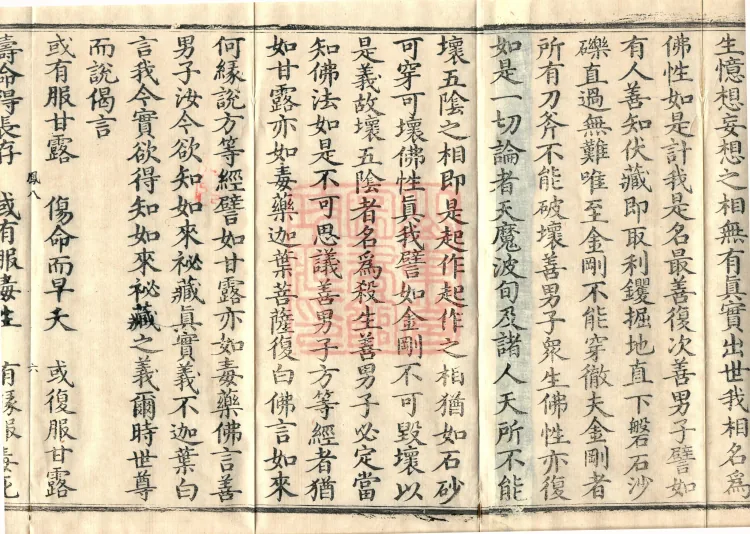 生憶想妄想之相無有真實出世我相名為
佛性如是計我是名最善復次善男子譬如
有人善知伏藏即取利钁掘地直下磐石沙
礫直過無難唯至金剛不能穿徹夫金剛者
所有刀斧不能破壞善男子衆生佛性亦復
如是一切論者天魔波旬及諸人天所不能
壞五陰之相即是起作起作之相猶如石砂
可穿可壞佛性真我譬如金剛不可毀壞以
是義故壞五陰者名為殺生善男子必定當
知佛法如是不可思議善男子方等經者猶
如甘露亦如毒藥迦葉菩薩復白佛言如來
何緣說方等經譬如甘露亦如毒藥佛言善
男子汝今欲知如來祕藏真實義不迦葉白
言我今實欲得知如來祕藏之義爾時世尊
而說偈言
或有服甘露 傷命而早夭 或復服甘露
鳳八 六
壽命得長存 或有服毒生 有緣服毒死